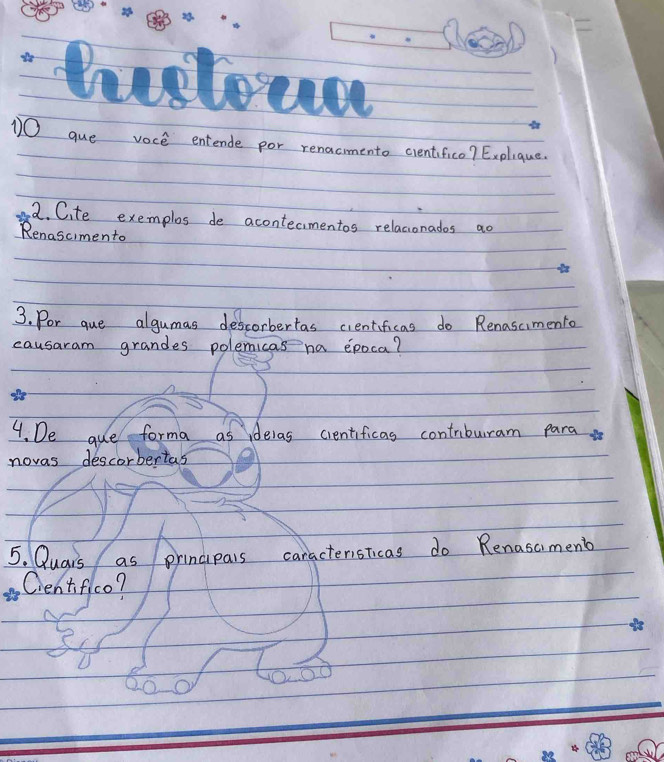 história
1) O que você entende por renacimento científico? Explique.
2. Cite exemplos de acontecimentos relacionados ao
Renascimento
3. Por que algumas descorbertas científicas do Renascimento
causaram grandes polemicas na época?
4. De que forma as ideias cientificas contribuiram para
novas descorbertas
5. Quais as principais caracteristicas do Renascimento
Cientifico?